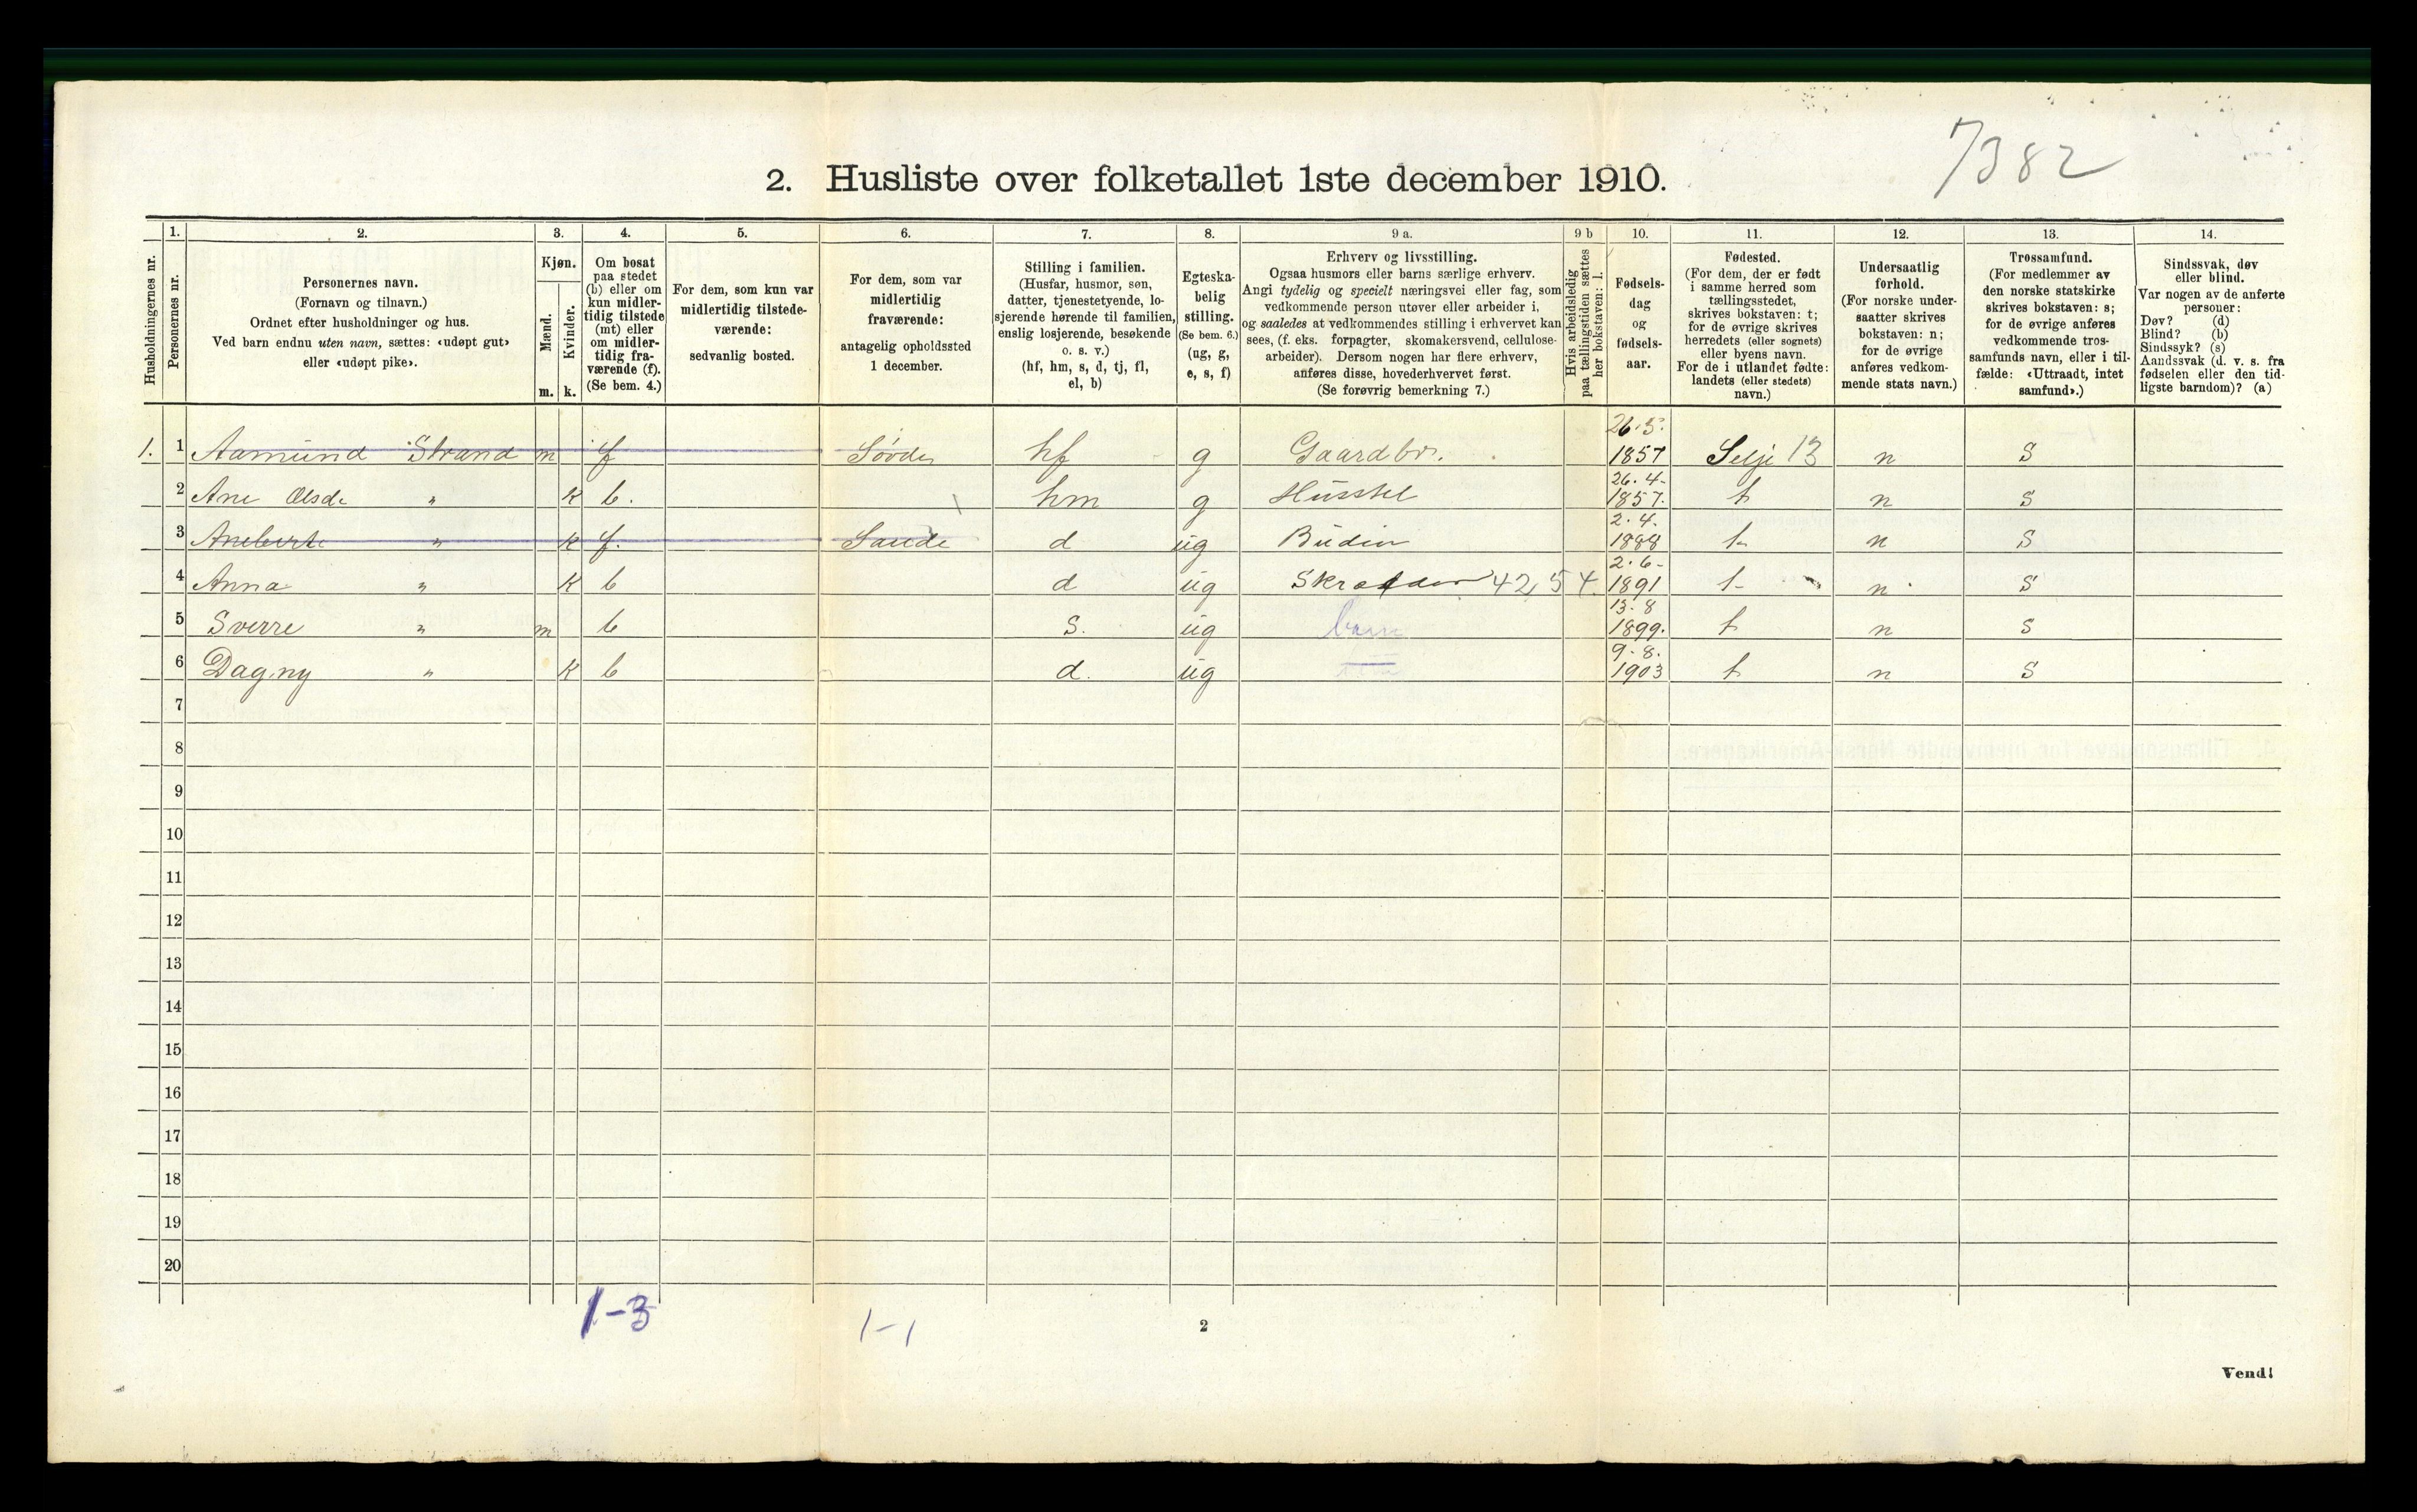 7382
2. Husliste over folketallet 1ste december 1910.
Husholdningernes nr.
1.
Personernes nr.
2.
Personernes navn.
(Fornavn og tilnavn.)
Ordnet efter husholdninger og hus.
Ved barn endnu uten navn, sættes: «udøpt gut»
eller «udøpt pike».
3.
Kjøn.
Mænd.
Kvinder.
m. k.
4.
Om bosat
paa stedet
(b) eller om
kun midler-
tidig tilstede
(mt) eller
om midler-
tidig fra-
værende (f).
(Se bem. 4.)
5.
For dem, som kun var
midlertidig tilstede-
værende:
sedvanlig bosted.
6.
For dem, som var
midlertidig
fraværende:
antagelig opholdssted
1 december.
7.
Stilling i familien.
(Husfar, husmor, søn,
datter, tjenestetyende, lo-
sjerende hørende til familien,
enslig losjerende, besøkende
o. s. v.)
(hf, hm, s, d, tj, fl,
el, b)
8.
Egteska-
belig
stilling.
(Se bem. 6.)
(ug, g,
e, s, f)
9 a.
Erhverv og livsstilling.
Ogsaa husmors eller barns særlige erhverv.
Angi tydelig og specielt næringsvei eller fag, som
vedkommende person utøver eller arbeider i,
og saaledes at vedkommendes stilling i erhvervet kan
sees, (f. eks. forpagter, skomakersvend, cellulose-
arbeider). Dersom nogen har flere erhverv,
anføres disse, hovederhvervet først.
(Se forøvrig bemerkning 7.)
9 b
Hvis arbeidsledig
paa tællingstiden sættes
her bokstaven: l.
10.
Fødsels-
dag
og
fødsels-
aar.
11.
Fødested.
(For dem, der er født
i samme herred som
tællingsstedet,
skrives bokstaven: t;
for de øvrige skrives
herredets (eller sognets)
eller byens navn.
For de i utlandet fødte:
landets (eller stedets)
navn.)
12.
Undersaatlig
forhold.
(For norske under-
saatter skrives
bokstaven: n;
for de øvrige
anføres vedkom-
mende stats navn.)
13.
Trossamfund.
(For medlemmer av
den norske statskirke
skrives bokstaven: s;
for de øvrige anføres
vedkommende tros-
samfunds navn, eller i til-
fælde: «Uttraadt, intet
samfund».)
14.
Sindssvak, døv
eller blind.
Var nogen av de anførte
personer:
Døv? (d)
Blind? (b)
Sindssyk? (s)
Aandssvak (d. v. s. fra
fødselen eller den tid-
ligste barndom)? (a)
1. 1 Aamund Strand m f Søvde hf g Gaardbr. 26.5. 1857 Selje 13 n S
2 Ane Olsdt " k b. hm g Husstel 26.4. 1857. t n S
3 Aneberte " k f. Sande d ug Budeie 2.4. 1888 t n S
4 Anna " k b d ug 4254. 2.6. 1891 t n S
5 Sverre " m b S. ug barn 13.8 1899. t n S
6 Dagny " k b d. ug 9.8. 1903 t n S
7
8
9
10
11
12
13
14
15
16
17
18
19
20
1-3
1-1
2
Vend!